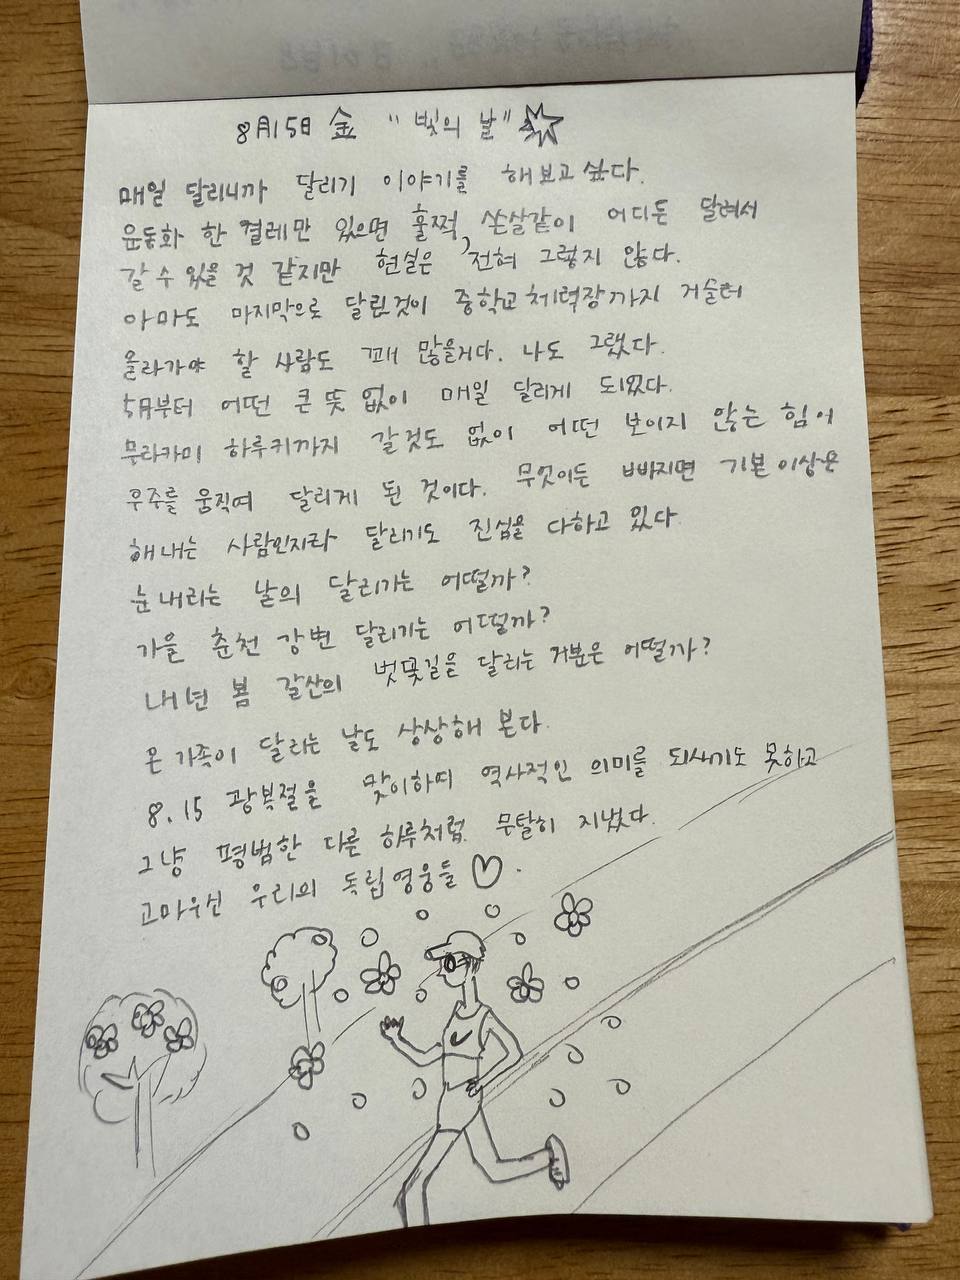 8月15日 金 "빛의 날"
매일 달리니까 달리기 이야기를 해보고 싶다.
운동화 한 켤레만 있으면 훌쩍, 쏜살같이 어디든 달려서
갈 수 있을 것 같지만 현실은 전혀 그렇지 않다.
아마도 마지막으로 달린것이 중학교체력장까지 거슬러
올라가야 할 사람도 꽤 많을거다. 나도 그랬다.
5月부터 어떤 큰 뜻 없이 매일 달리게 되었다.
무라카미 하루키까지 갈것도 없이 어떤 보이지 않는 힘이
우주를 움직여 달리게 된 것이다. 무엇이든 빠지면 기본이상은
해내는 사람인지라 달리기도 진심을 다하고 있다.
눈내리는 날의 달리기는 어떨까?
가을 춘천 강변 달리기는 어떨까?
내년 봄 갈산의 벚꽃길을 달리는 기분은 어떨까?
온가족이 달리는 날도 상상해 본다.
8.15 광복절을 맞이하며 역사적인 의미를 되새기도 못하고
그냥 평범한 다른 하루처럼 무탈히 지냈다.
고마우신 우리의 독립영웅들 ♡.